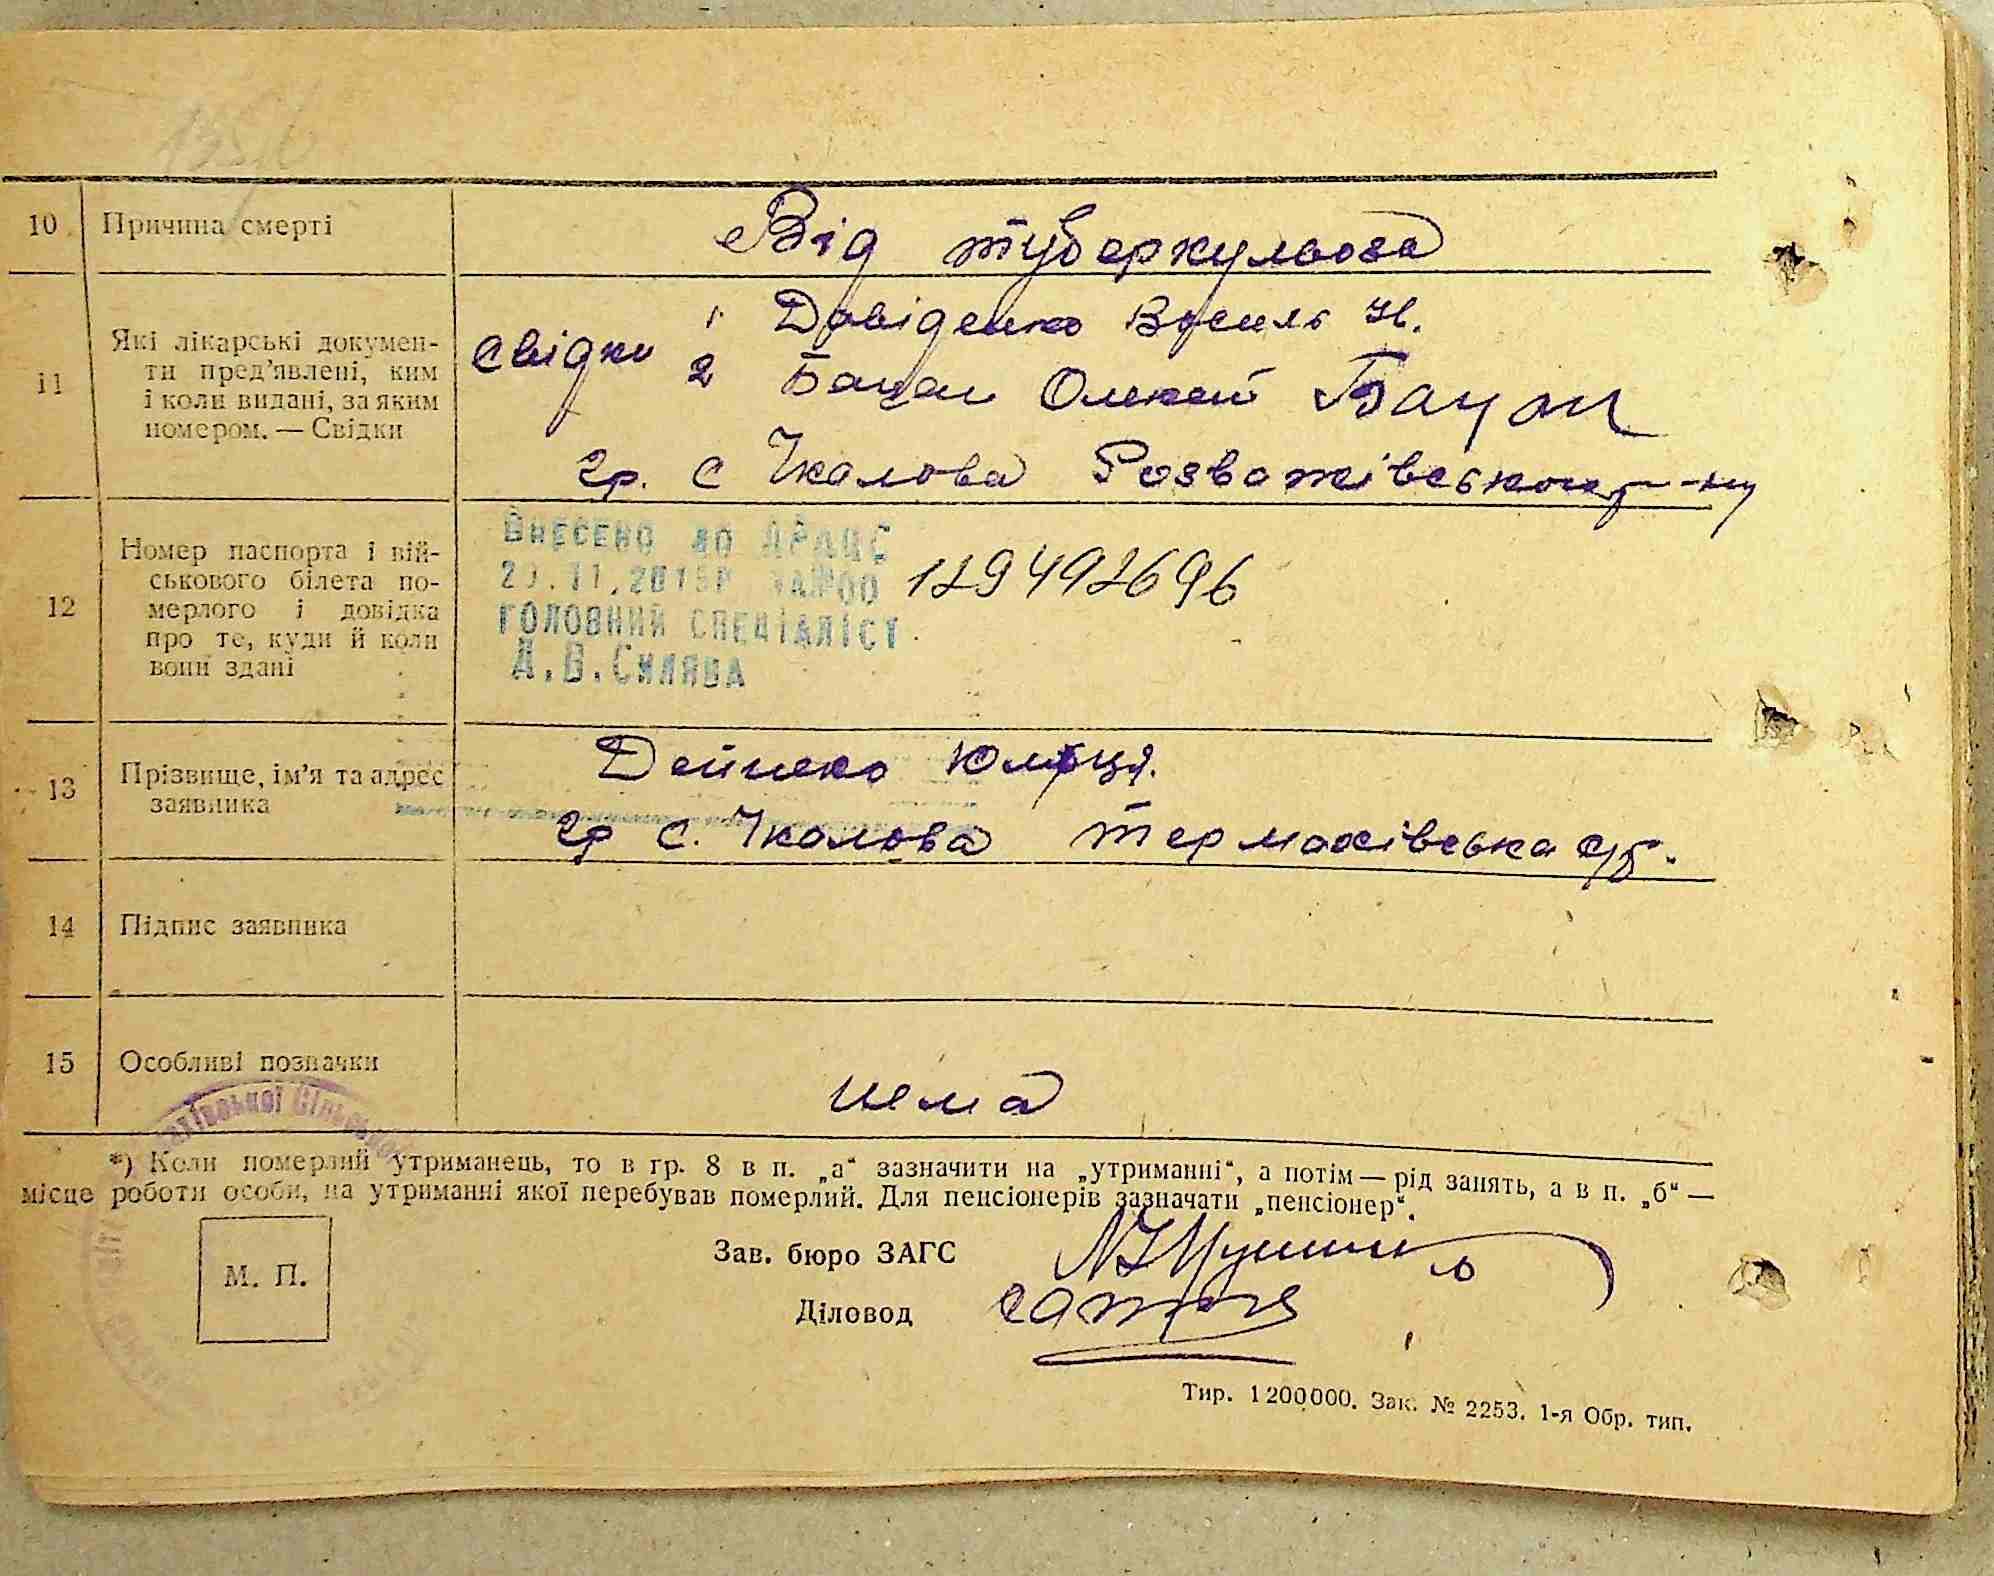 10 Причина смерті Від туберкульоза
11 Які лікарські документи пред'явлені, ким і коли видані, за яким номером. — Свідки
Свідки 1. Давіденко Василь Н.
2 Бацан Олексій Бацан
гр. с Чкалова Розважівського р-ну
12 Номер паспорта і військового білета померлого і довідка про те, куди й коли вони здані
Внесено до ДРАЦС
129492696
головний спеціаліст
Д.В.Силява
13 Прізвище, ім'я та адрес заявника
Дейнеко
гр с. Чкалова Термахівська с/р.
14 Підпис заявника
15 Особливі позначки нема
*) Коли померлий утриманець, то в гр. 8 в п. „а“ зазначити на „утриманні“, а потім — рід занять, а в п. „б“ —
місце роботи особи, на утриманні якої перебував померлий. Для пенсіонерів зазначати „пенсіонер“.
М. П.
Зав. бюро ЗАГС
Діловод
Тир. 1200000. Зак. № 2253. 1-я Обр. тип.